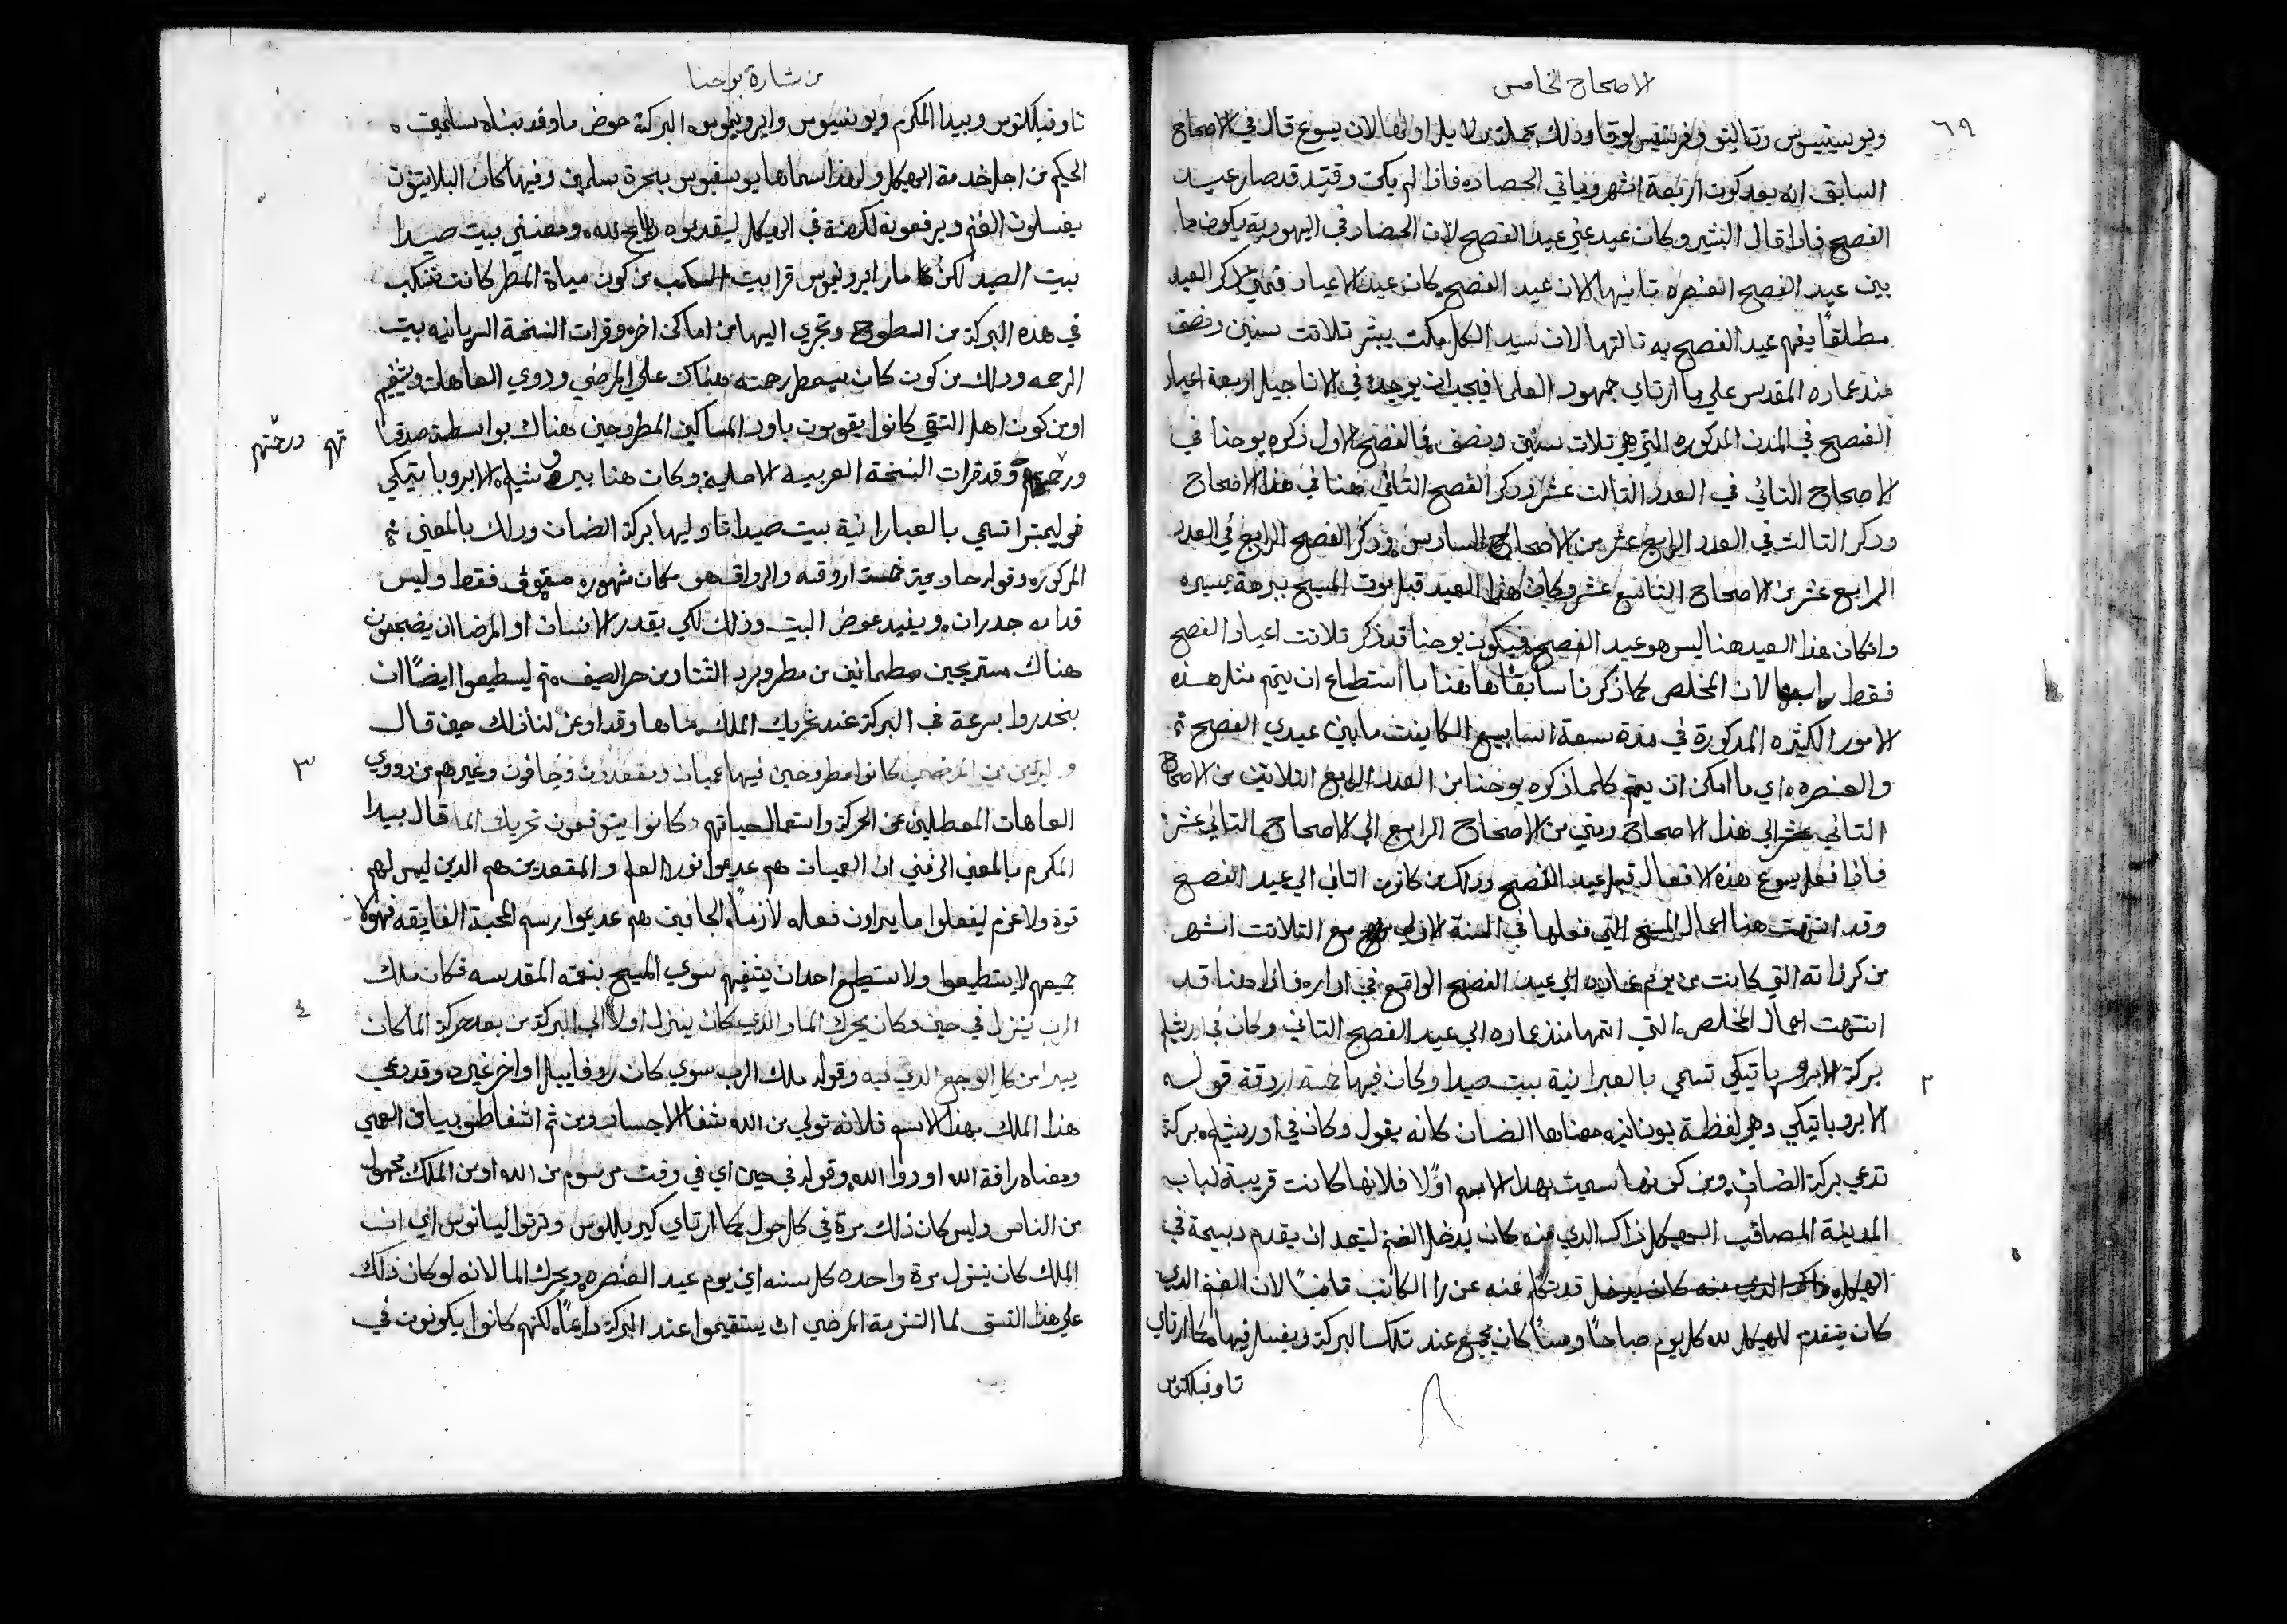 الاصحاح الخامس
٦٩
ويوستينيوس وتاليتو وفرنتيس لوقا وذلك بجملة دلايل اولها لان يسوع قال في الاصحاح
السابق انه بعد يكون اربعة اشهر وياتي الحصاد فاذا لم يكن وقتيد قد صار عيد
الفصح فاذا قال البشير وكان عيد عني عيد الفصح لان الحصاد في اليهودية يكون ما
بين عيد الفصح العنصره تانيها لان عيد الفصح كان عيد الاعياد فمتي ذكر العيد
مطلقاً يفهم عيد الفصح به تالتها لان سيد الكل مكت يبشر تلات سنين ونصف
منذ عماده المقدس علي ما ارتاي جمهور العلما فيجب ان يوجد في الاناجيل اربعة اعياد
الفصح في المدت المدكوره التي هي تلات سنين ونصف فالفصح الاول ذكره يوحنا في
الاصحاح التاني في العدد التالت عشر ودكر الفصح التاني هنا في هذا الاصحاح
ودكر التالت في العدد الرابع عشر من الاصحاح السادس وذكر الفصح الرابع في العدد
الرابع عشر من الاصحاح التاسع عشر وكان هذا العيد قبل موت المسيح ببرهة يسيره
وان كان هذا العيد هنا ليس هو عيد الفصح فيكون يوحنا قد ذكر تلات اعياد الفصح
فقط رابعها لان المخلص كما ذكرنا سابقاً هاهنا ما استطاع ان يتمم مثل هذه
الامور الكثيره المدكورة في مدة سبعة اسابيع الكاينت مابين عيدي الفصح
والعنصره اي ما امكن ان يتم كلما ذكره يوحنا من العدد الرابع التلاتين من الاصحاح
التاني عشر الي هذا الاصحاح ومتي من الاصحاح الرابع الي الاصحاح التاني عشر
فاذا فعل يسوع هذه الافعال قبل عيد الفصح وذلك من كانون التاني الي عيد الفصح
وقد انتهت هنا اعمال المسيح التي فعلها في السنة الاولي مع التلات اشهر
من كرزاته التي كانت من يوم عماده الي عيد الفصح الواقع في ادار فاذا هنا قد
انتهت اعمال المخلص التي اتمها منذ عماده الي عيد الفصح التاني وكان في اورشليم
٢
بركة الابروباتيكي تسمي بالعبرانية بيت صيدا وكان فيها خمسة اروقة قوله
الابروباتيكي وهي لفظة يونانيه معناها الضان كانه يقول وكان في اورشليم بركة
تدعي بركة الضان ومن كونها سميت بهذا الاسم اولاً فلانها كانت قريبة لباب
المدينة المصاقب الهيكل ذاك الذي منه كان يدخل الغنم ليتعد ان يقدم دبيحة في
الهيكل قد تكلم عنه عزرا الكاتب لان الغنم الدي
كان يتقدم للهيكل لله كل يوم صباحاً ومساً كان يجمع عند تلك البركة ويغسل فيها كما ارتاي
تاوفيلكتوس
من بشارة يوحنا
تاوفيلكتوس وبيدا المكرم ويونسيوس وايرونيموس البركة حوض ماوقد بناه سليمن
الحكيم من اجل خدمة الهيكل ولهذا اسماها يوسيفوس بحرة سليمن وفيها كان البلاتينون
يغسلون الغنم ويرفعونه لكهنة في الهيكل ليقدموه دبايح لله ومعني بيت صيدا
بيت الصيد لكن مار ايرونيموس قرا بيت السكب من كون مياة المطر كانت تنسكب
في هذه البركة من السطوح وتجري اليها من اماكن اخر وقرات النسخة السريانيه بيت
الرحمه وذلك من كون كان يمطر رحمته هناك علي المرضي وذوي العاهات ويشفيهم
او من كون اهل التقي كانوا يقوتون باود المساكين المطروحين هناك بواسطة صدقا
تهم ورحمتهم
ورحمتهم وقد قرات النسخة العربيه الاصليه وكان هنا بيروشليم الابروباتيكي
قوليمبترا تسمي بالعبرانية بيت صيدا تاوليها بركة الضان وذلك بالمعني
المذكوره وقوله حاويت خمسة اروقه والرواق هو مكان مشهوره مسقوف فقط وليس
قدامه جدران ويفيد عوض البيت وذلك لكي يقدر الانسان او المرضا ان يضجعون
هناك مستريحين مطمانين من مطر وبرد الشتا ومن حر الصيف تم ليستطيعوا ايضاً ان
ينحدروا بسرعة في البركة عند تحريك الملاك ماها وقد اوعز لنا ذلك حين قال
٣
وكتير من المرضي كانوا مطروحين فيها عميان ومقعدون وجافون وغيرهم من ذووي
العاهات المعطلين عن الحركة واستعمال حياتهم وكانوا يتوقعون تحريك الما قال بيدا
المكرم بالمعني الرمزي ان العميان هم عديموا نور العلم والمقعدين هم الدين ليس لهم
قوة ولا عزم ليفعلوا ما يراون فعله لازماً والجافين هم عديموا رسم المحبة الفايقه فهولا
جميعهم لا يستطيعوا ولا يستطيع احد ان يشفيهم سوي المسيح بنعمته المقدسه فكان ملاك
٤
الرب ينزل في حين وكان يحرك الما والذي كان ينزل اولا الي البركة من بعد حركة الما كان
يبرا من كل الوجع الدي فيه وقوله ملاك الرب سوي كان روفاييل او اخر غيره وقد دعي
هذا الملاك بهذا الاسم فلانه تولي من الله شفا الاجساد ومن تم اشفا طوبيا من العمي
ومعناه رافة الله او دوا الله وقوله في حين اي في وقت مرسوم من الله او من الملاك مجهول
من الناس وليس كان ذلك مرة في كل حول كما ارتاي كيريللوس وترتوليانوس اي ان
الملاك كان ينزل مرة واحده كل سنه اي يوم عيد العنصره ويحرك الما لانه لو كان ذلك
علي هذا النسق لما التزمة المرضي ان يستقيموا عند البركة دايماً لكنهم كانوا يكونون في